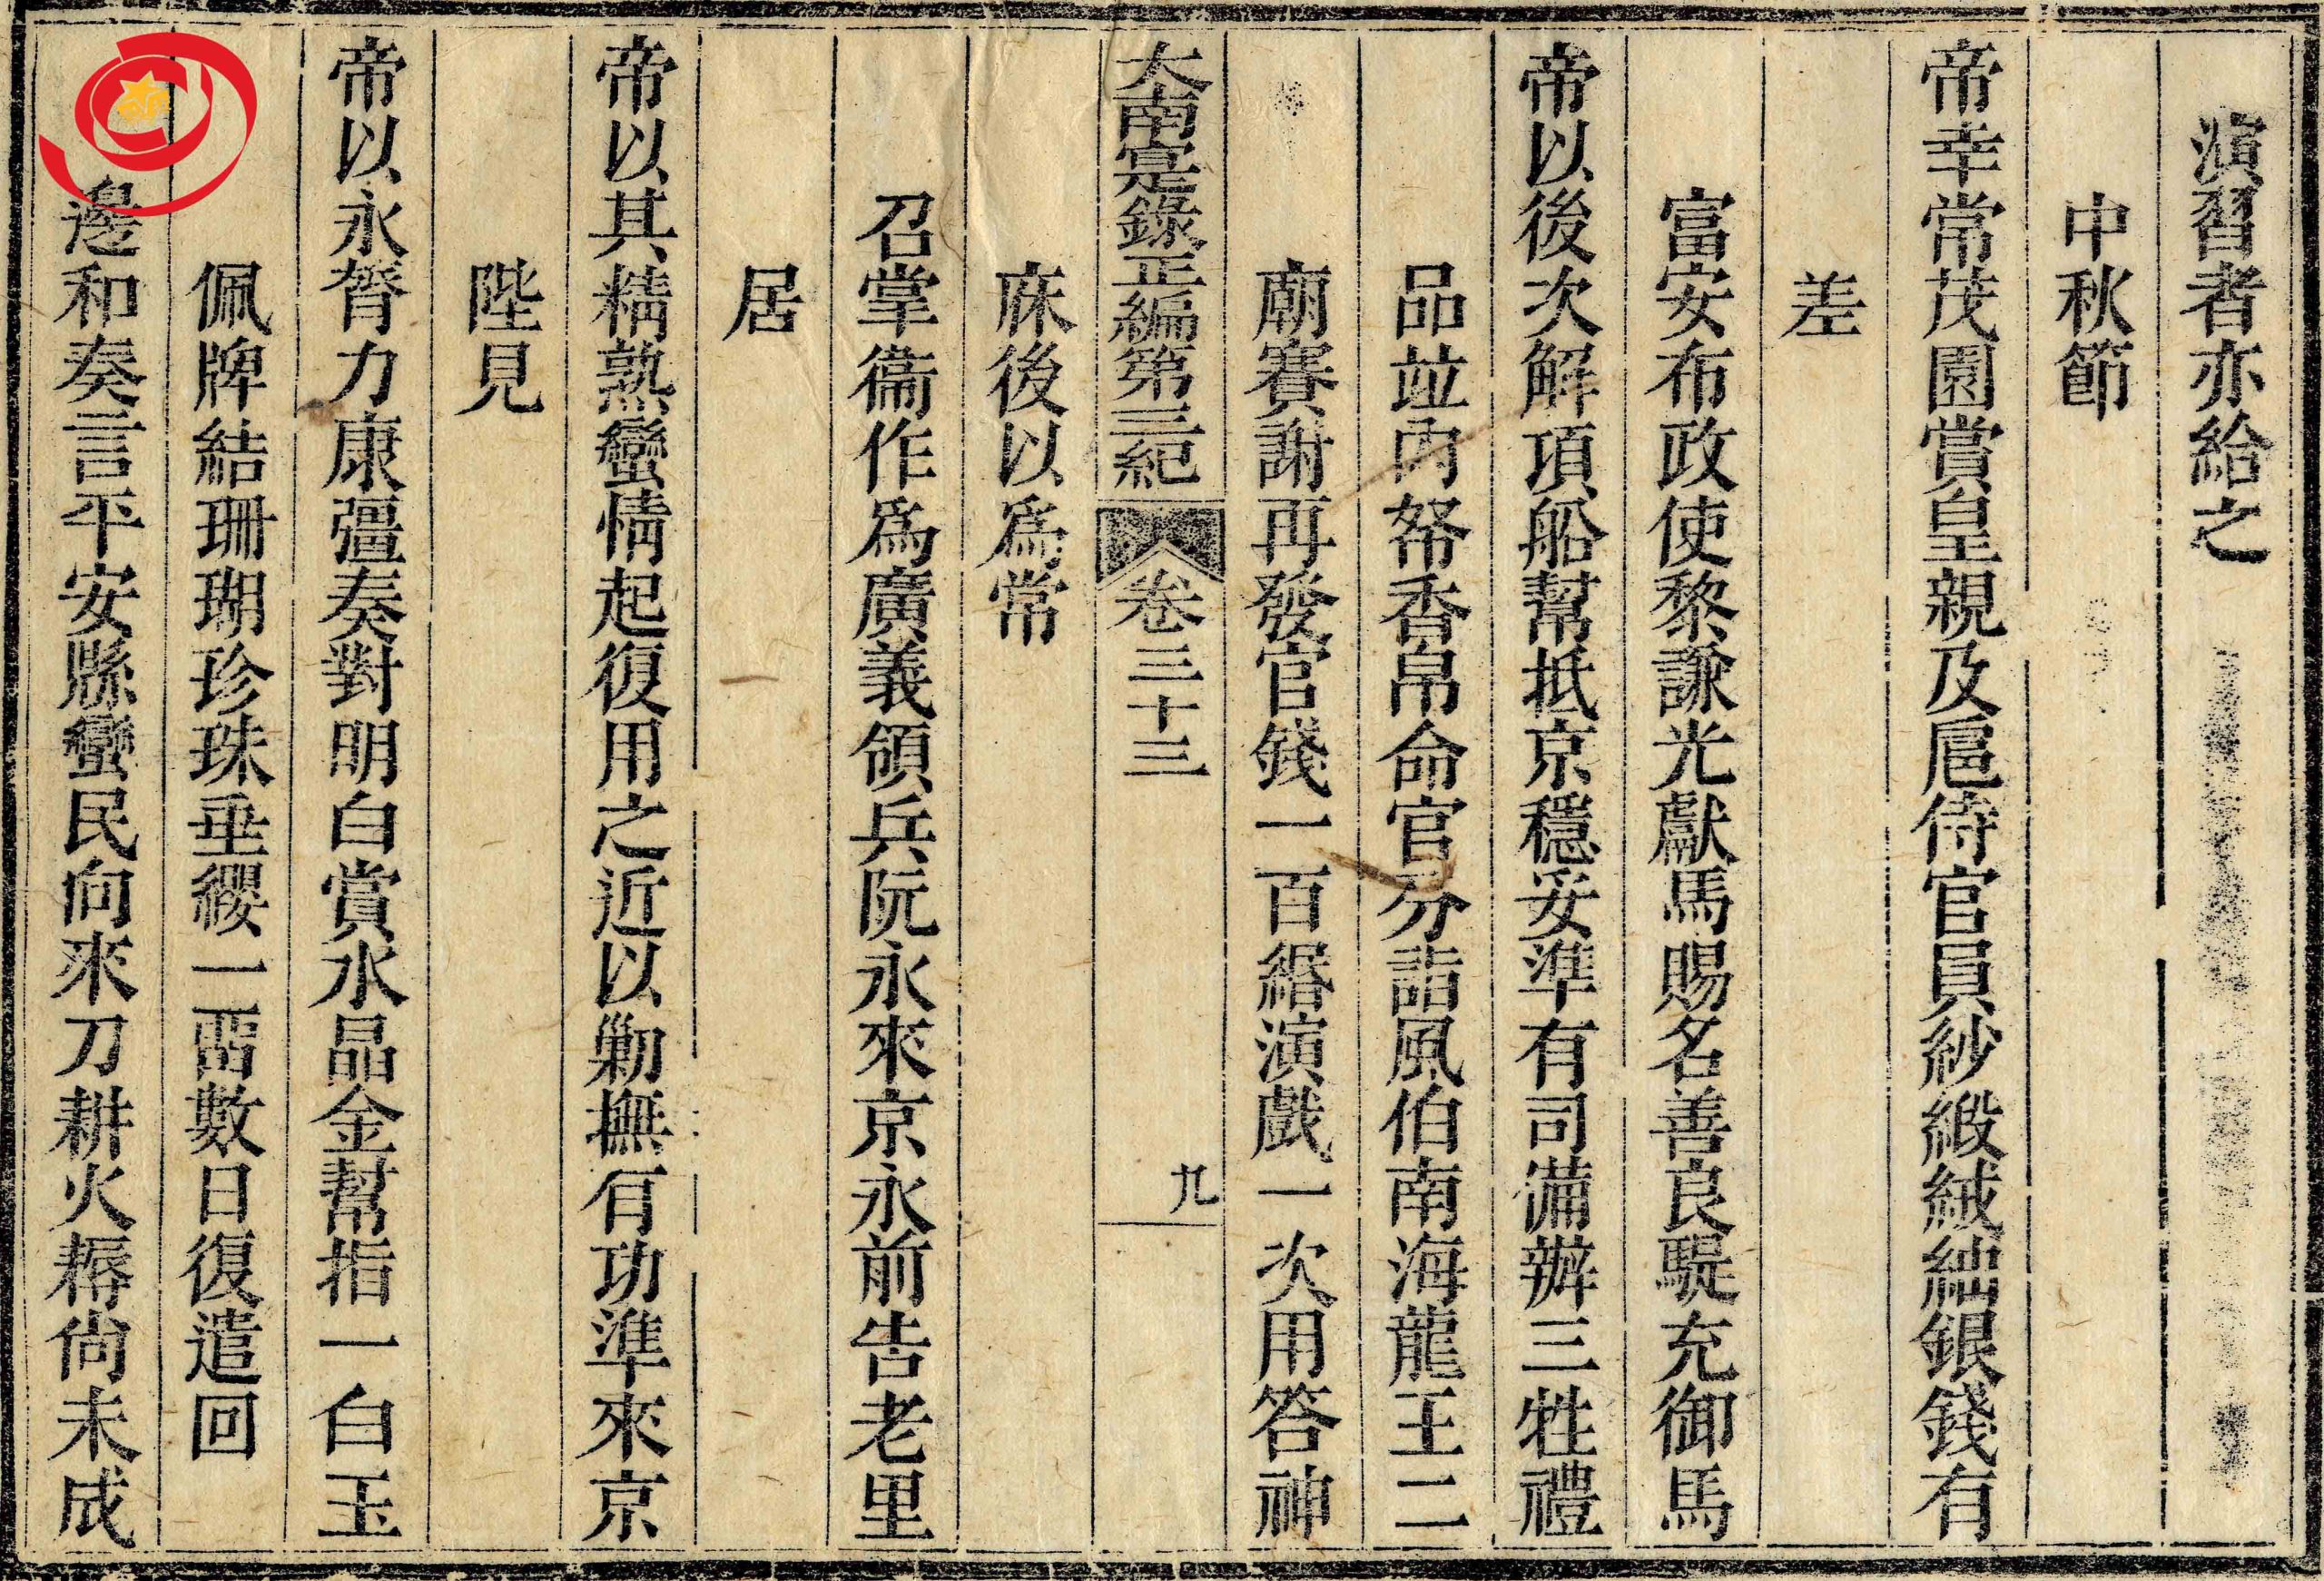 演習者亦給之
中秋節
帝幸常茂園賞皇親及扈侍官員紗緞絨紬銀錢有
差
富安布政使黎謙光獻馬賜名善良騠充御馬
帝以後次解項船幫抵京穩妥準有司備辦三牲禮
品竝內帑香帛命官分詣風伯南海龍王二
廟賽謝再發官錢一百緡演戲一次用答神
大南寔錄正編第三紀 卷三十三 九
庥後以爲常
召掌衞作爲廣義領兵阮永來京永前告老里
居
帝以其精熟蠻情起復用之近以勦撫有功準來京
陛見
帝以永膂力康彊奏對明白賞水晶金幫指一白玉
佩牌結珊瑚珍珠垂纓一畱數日復遣回
邊和奏言平安縣蠻民向來刀耕火耨尙未成